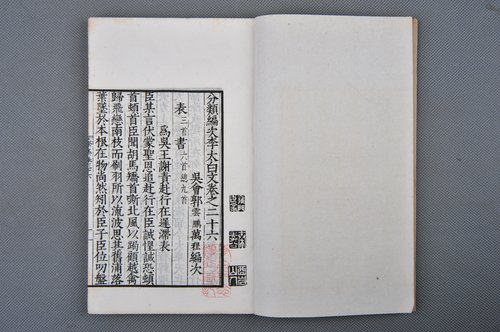 分類編次李太白文卷之二十六
吳會郭雲鵬萬程編次
表三首 書六首 總九首
為吳王謝責赴行在遲滯表
臣某言伏蒙聖恩追赴行在臣誠惶誠恐頓
首頓首臣聞胡馬矯首嘶北風以跼顧越禽
歸飛戀南枝而刷羽所以流波思其舊浦落
葉墜於本根在物尚然矧於臣子臣位叨盤